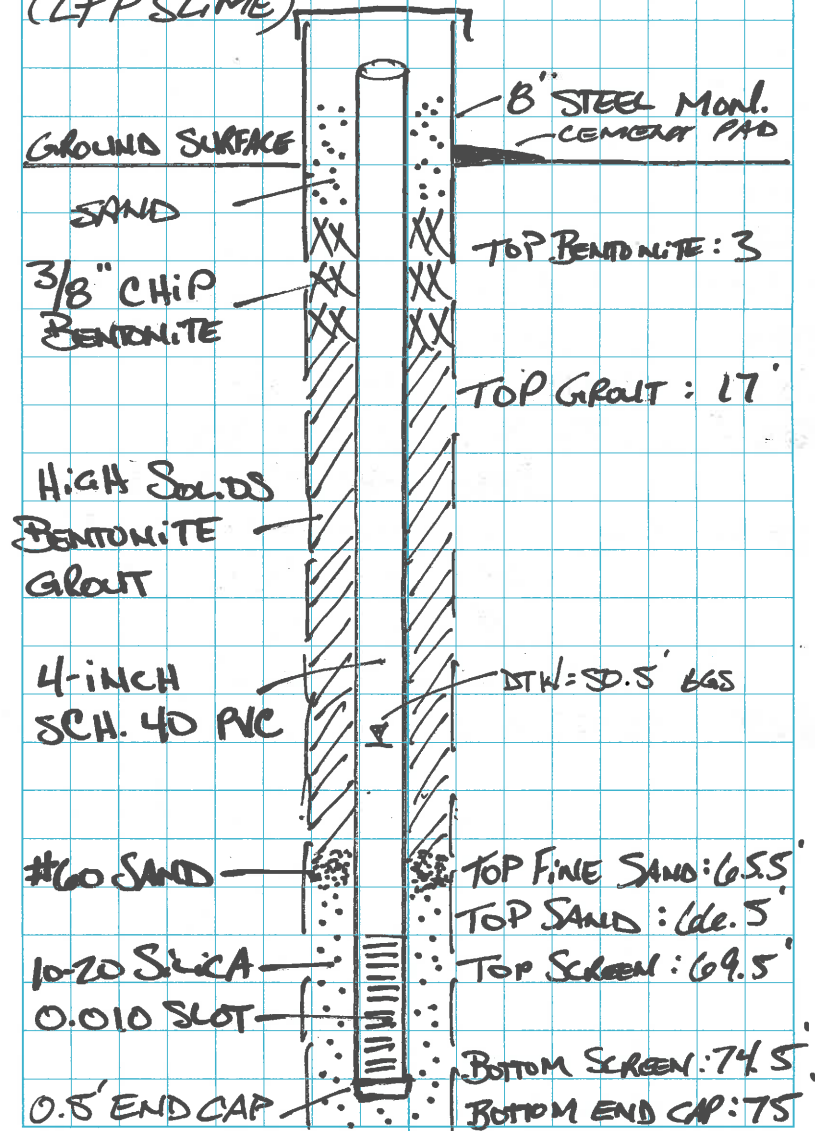 (LPP SLIME)
8" STEEL MON.
CEMENT PAD
GROUND SURFACE
SAND
TOP BENTONITE: 3
3/8" CHIP
BENTONITE
TOP GROUT: 17'
HIGH SOLIDS
BENTONITE
GROUT
4-INCH
SCH. 40 PVC
DTW=50.5' BGS
#60 SAND
TOP FINE SAND: 65.5'
TOP SAND: 66.5'
10-20 SILICA
TOP SCREEN: 69.5'
0.010 SLOT
BOTTOM SCREEN: 74.5'
0.5' END CAP
BOTTOM END CAP: 75'